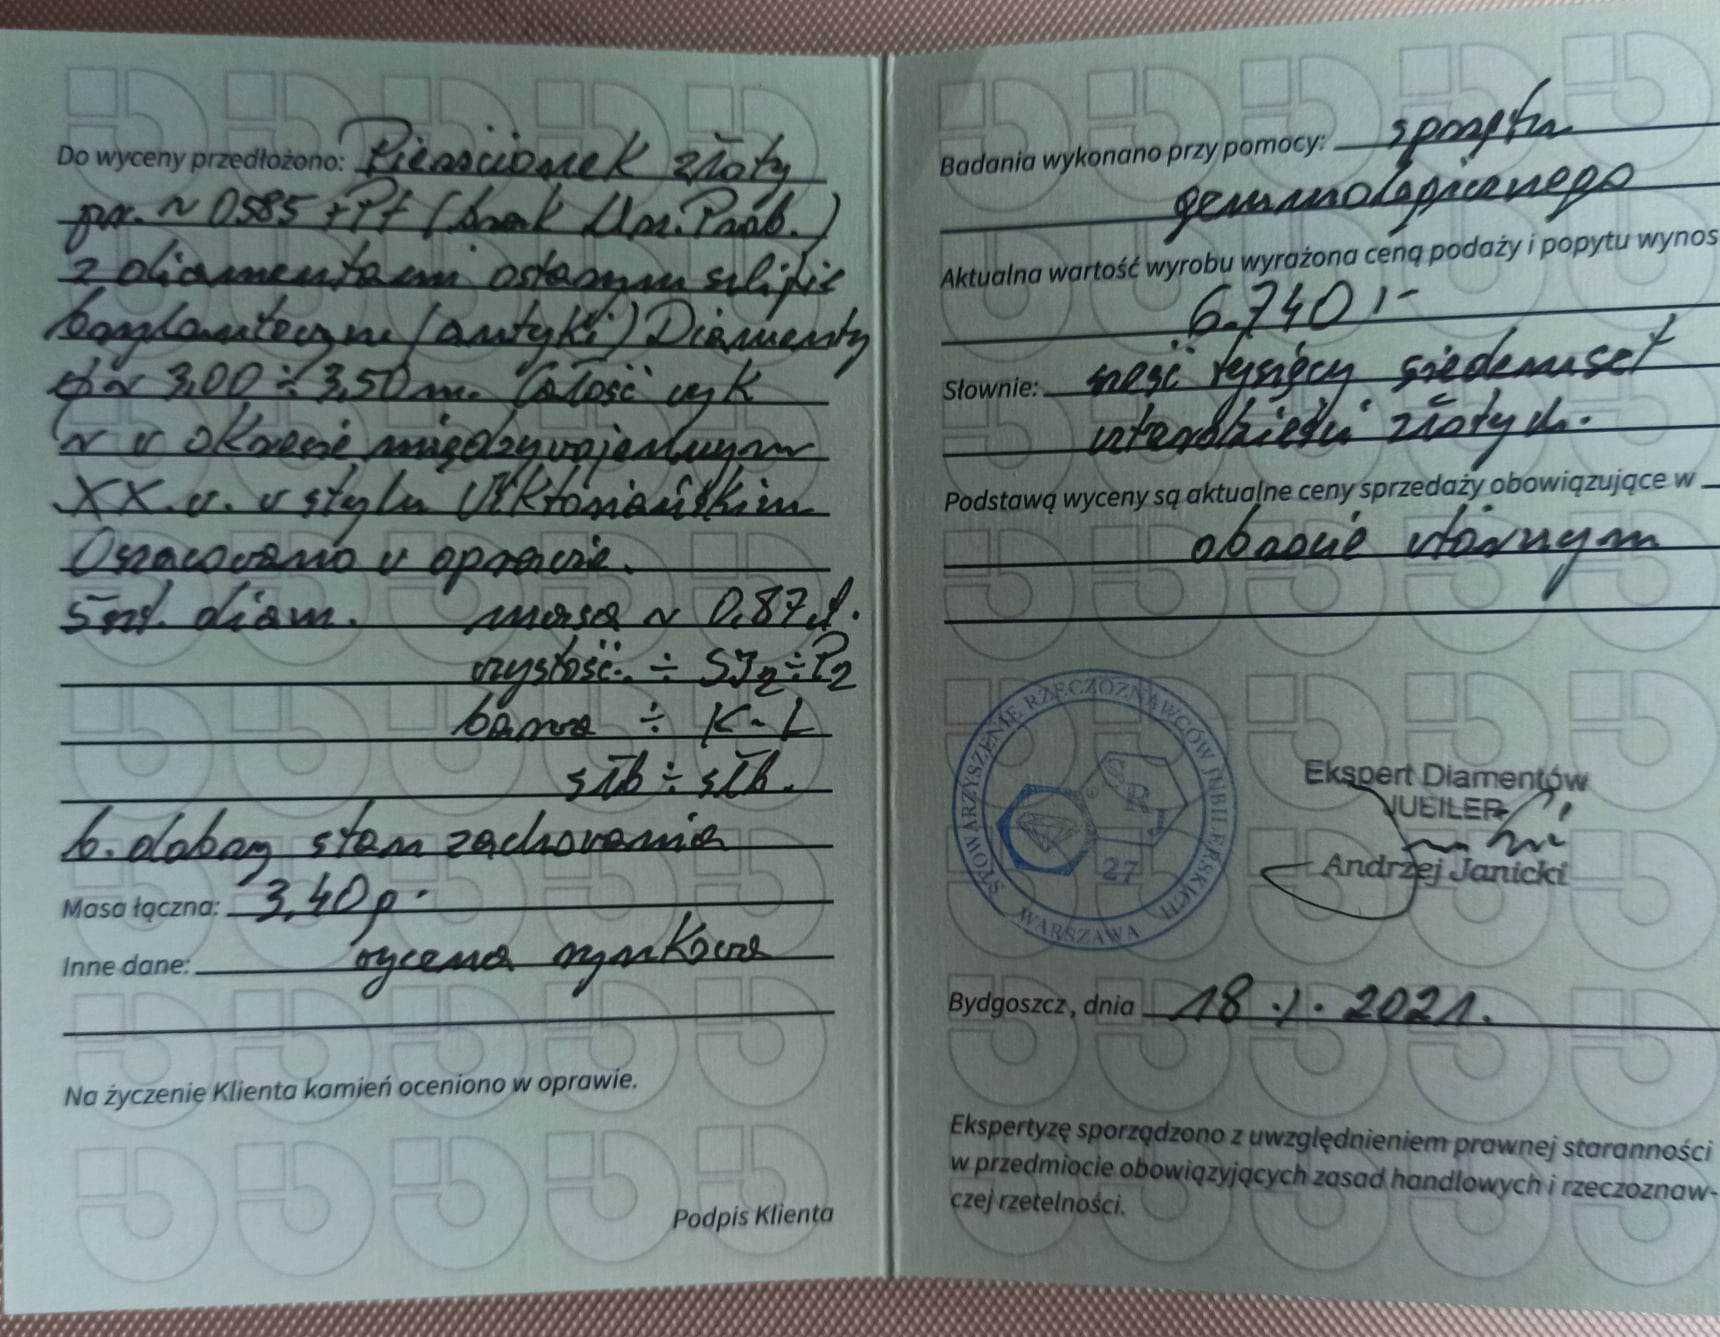 Do wyceny przedłożono: Pierścionek złoty
pr. ~ 0,585 + Pt (brak Um. Prob.)
z diamentami o starym szlifie
brylantowym (antyki) Diamenty
~ 3,00 ÷ 3,50 m. Całość wyk
~ w okresie międzywojennym
XX.w. w stylu Wiktoriańskim
Oszacowano w oprawie.
5 szt. diam. masa ~ 0,87 ct.
czystość. ÷ SI2 ÷ P2
barwa ÷ K-L
szlb ÷ szlb.
b. dobry stan zachowania
Masa łączna: 3,40 g.
Inne dane: wycena rynkowa
Na życzenie Klienta kamień oceniono w oprawie.
Podpis Klienta
Badania wykonano przy pomocy: sprzętu
gemmologicznego
Aktualna wartość wyrobu wyrażona ceną podaży i popytu wynos
6.740,-
Słownie: sześć tysięcy siedemset
czterdzieści złotych.
Podstawą wyceny są aktualne ceny sprzedaży obowiązujące w
obrocie wtórnym
STOWARZYSZENIE RZECZOZNAWCÓW JUBILERSKICH
WARSZAWA
27
Ekspert Diamentów
JUBILER
Andrzej Janicki
Bydgoszcz, dnia 18.1.2021.
Ekspertyzę sporządzono z uwzględnieniem prawnej staranności
w przedmiocie obowiązyjących zasad handlowych i rzeczoznaw-
czej rzetelności.